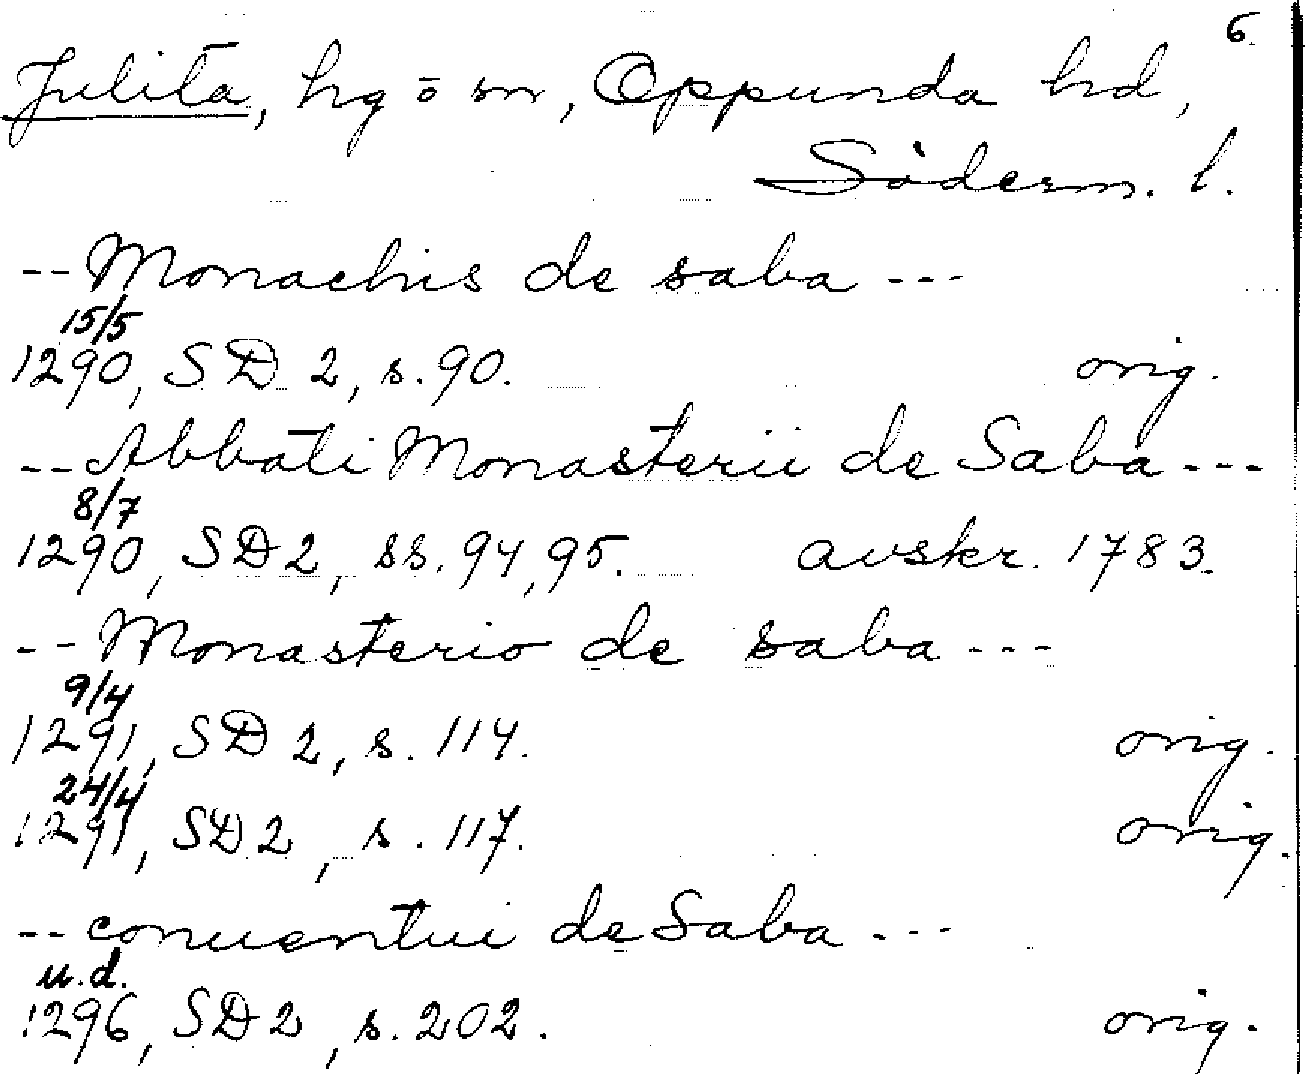 6
Julita, hg o sn, Oppunda hd,
Söderm. l.
-- Monachis de saba ---
15/5
1290, SD 2, s. 90. orig.
-- Abbati Monasterii de Saba ---
8/7
1290, SD 2, ss. 94, 95. avskr. 1783.
-- Monasterio de saba ---
9/4
1291, SD 2, s. 114. orig.
24/4
1291, SD 2, s. 117. orig.
-- conuentui de Saba ---
u.d.
1296, SD 2, s. 202. orig.